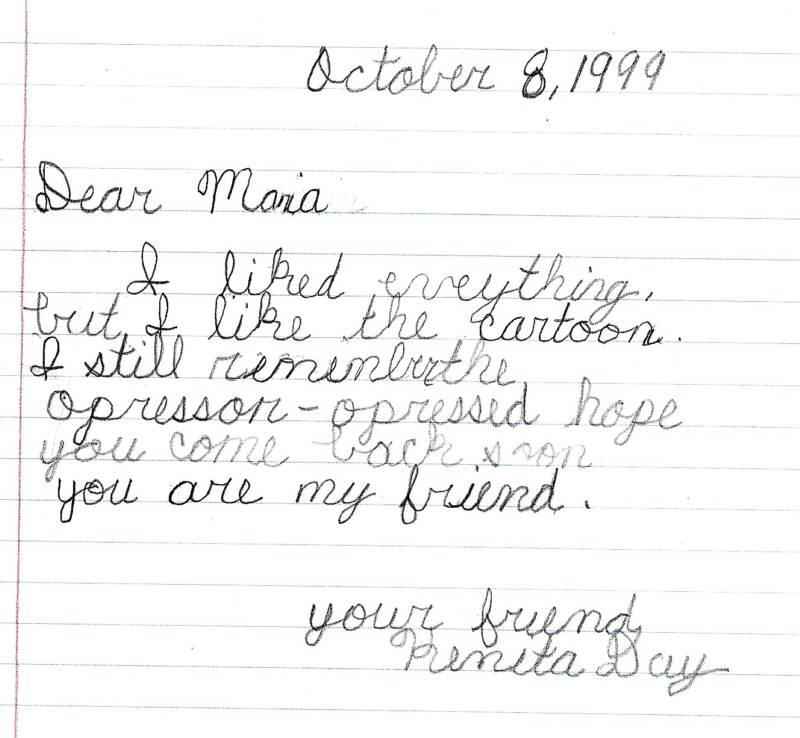 October 8, 1999
Dear Maria
I liked eveything,
but I like the cartoon.
I still rememberthe
opressor-opressed hope
you come back soon
you are my friend.
your friend,
Kenita Day